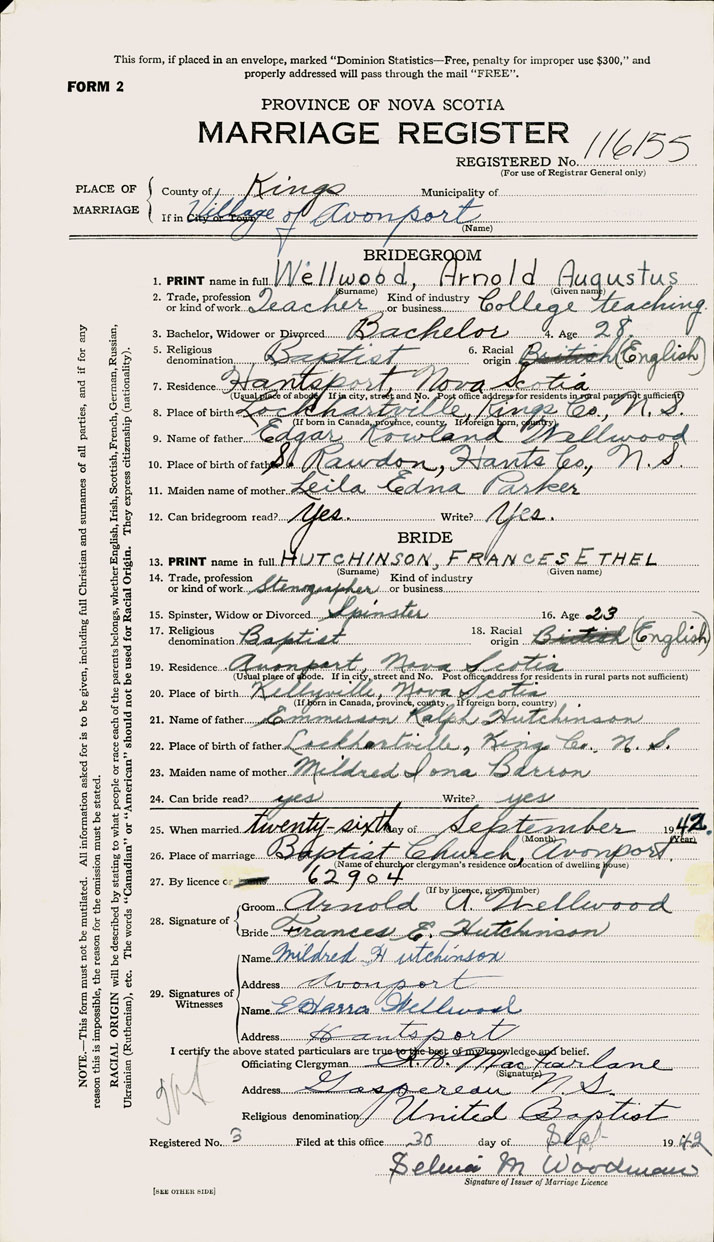 This form, if placed in an envelope, marked "Dominion Statistics—Free, penalty for improper use $300," and
properly addressed will pass through the mail "FREE".
FORM 2
PROVINCE OF NOVA SCOTIA
MARRIAGE REGISTER
REGISTERED No. 116155
(For use of Registrar General only)
PLACE OF MARRIAGE
County of Kings Municipality of
If in City or Town Village of Avonport
(Name)
BRIDEGROOM
1. PRINT name in full Wellwood, Arnold Augustus
(Surname) (Given name)
2. Trade, profession or kind of work Teacher Kind of industry or business College teaching.
3. Bachelor, Widower or Divorced Bachelor 4. Age 28.
5. Religious denomination Baptist 6. Racial origin British (English)
7. Residence Hantsport, Nova Scotia
(Usual place of abode. If in city, street and No. Post office address for residents in rural parts not sufficient)
8. Place of birth Lockhartville, Kings Co., N. S.
(If born in Canada, province, county, If foreign born, country)
9. Name of father Edgar Rowland Wellwood
10. Place of birth of father S. Rawdon, Hants Co., N. S.
11. Maiden name of mother Leila Edna Parker
12. Can bridegroom read? Yes. Write? Yes.
BRIDE
13. PRINT name in full HUTCHINSON, FRANCES ETHEL
(Surname) (Given name)
14. Trade, profession or kind of work Stenographer Kind of industry or business
15. Spinster, Widow or Divorced Spinster 16. Age 23
17. Religious denomination Baptist 18. Racial origin British (English)
19. Residence Avonport, Nova Scotia
(Usual place of abode. If in city, street and No. Post office address for residents in rural parts not sufficient)
20. Place of birth Kellyville, Nova Scotia
(If born in Canada, province, county, If foreign born, country)
21. Name of father Emmerson Ralph Hutchinson
22. Place of birth of father Lockhartville, King Co., N. S.
23. Maiden name of mother Mildred Iona Barron
24. Can bride read? yes Write? yes
25. When married twenty-sixth day of September 1942.
(Month) (Year)
26. Place of marriage Baptist Church, Avonport.
(Name of church or clergyman's residence or location of dwelling house)
27. By licence or 62904
(If by licence, give number)
28. Signature of
Groom Arnold A. Wellwood
Bride Frances E. Hutchinson
29. Signatures of Witnesses
Name Mildred Hutchinson
Address Avonport
Name Wellwood
Address Hantsport
I certify the above stated particulars are true to the best of my knowledge and belief.
Officiating Clergyman MacFarlane
(Signature)
Address Gaspereau N.S.
Religious denomination United Baptist
Registered No. 3 Filed at this office 30 day of Sept 1942
Selena M Woodman
Signature of Issuer of Marriage Licence
[SEE OTHER SIDE]
NOTE.—This form must not be mutilated. All information asked for is to be given, including full Christian and surnames of all parties, and if for any
reason this is impossible, the reason for the omission must be stated.
RACIAL ORIGIN will be described by stating to what people or race each of the parents belongs, whether English, Irish, Scottish, French, German, Russian,
Ukrainian (Ruthenian), etc. The words "Canadian" or "American" should not be used for Racial Origin. They express citizenship (nationality).